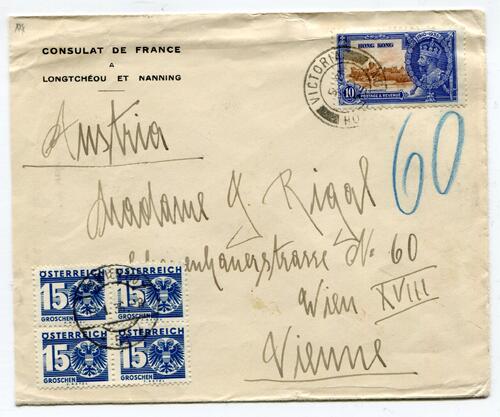 CONSULAT DE FRANCE
A
LONGTCHÉOU ET NANNING
HONG KONG
10
POSTAGE & REVENUE
VICTORIA
HO
60
Austria
Madame J. Rigal
No 60
Wien XVIII
Vienne
ÖSTERREICH
15
GROSCHEN
ÖSTERREICH
15
GROSCHEN
ÖSTERREICH
15
GROSCHEN
ÖSTERREICH
15
GROSCHEN